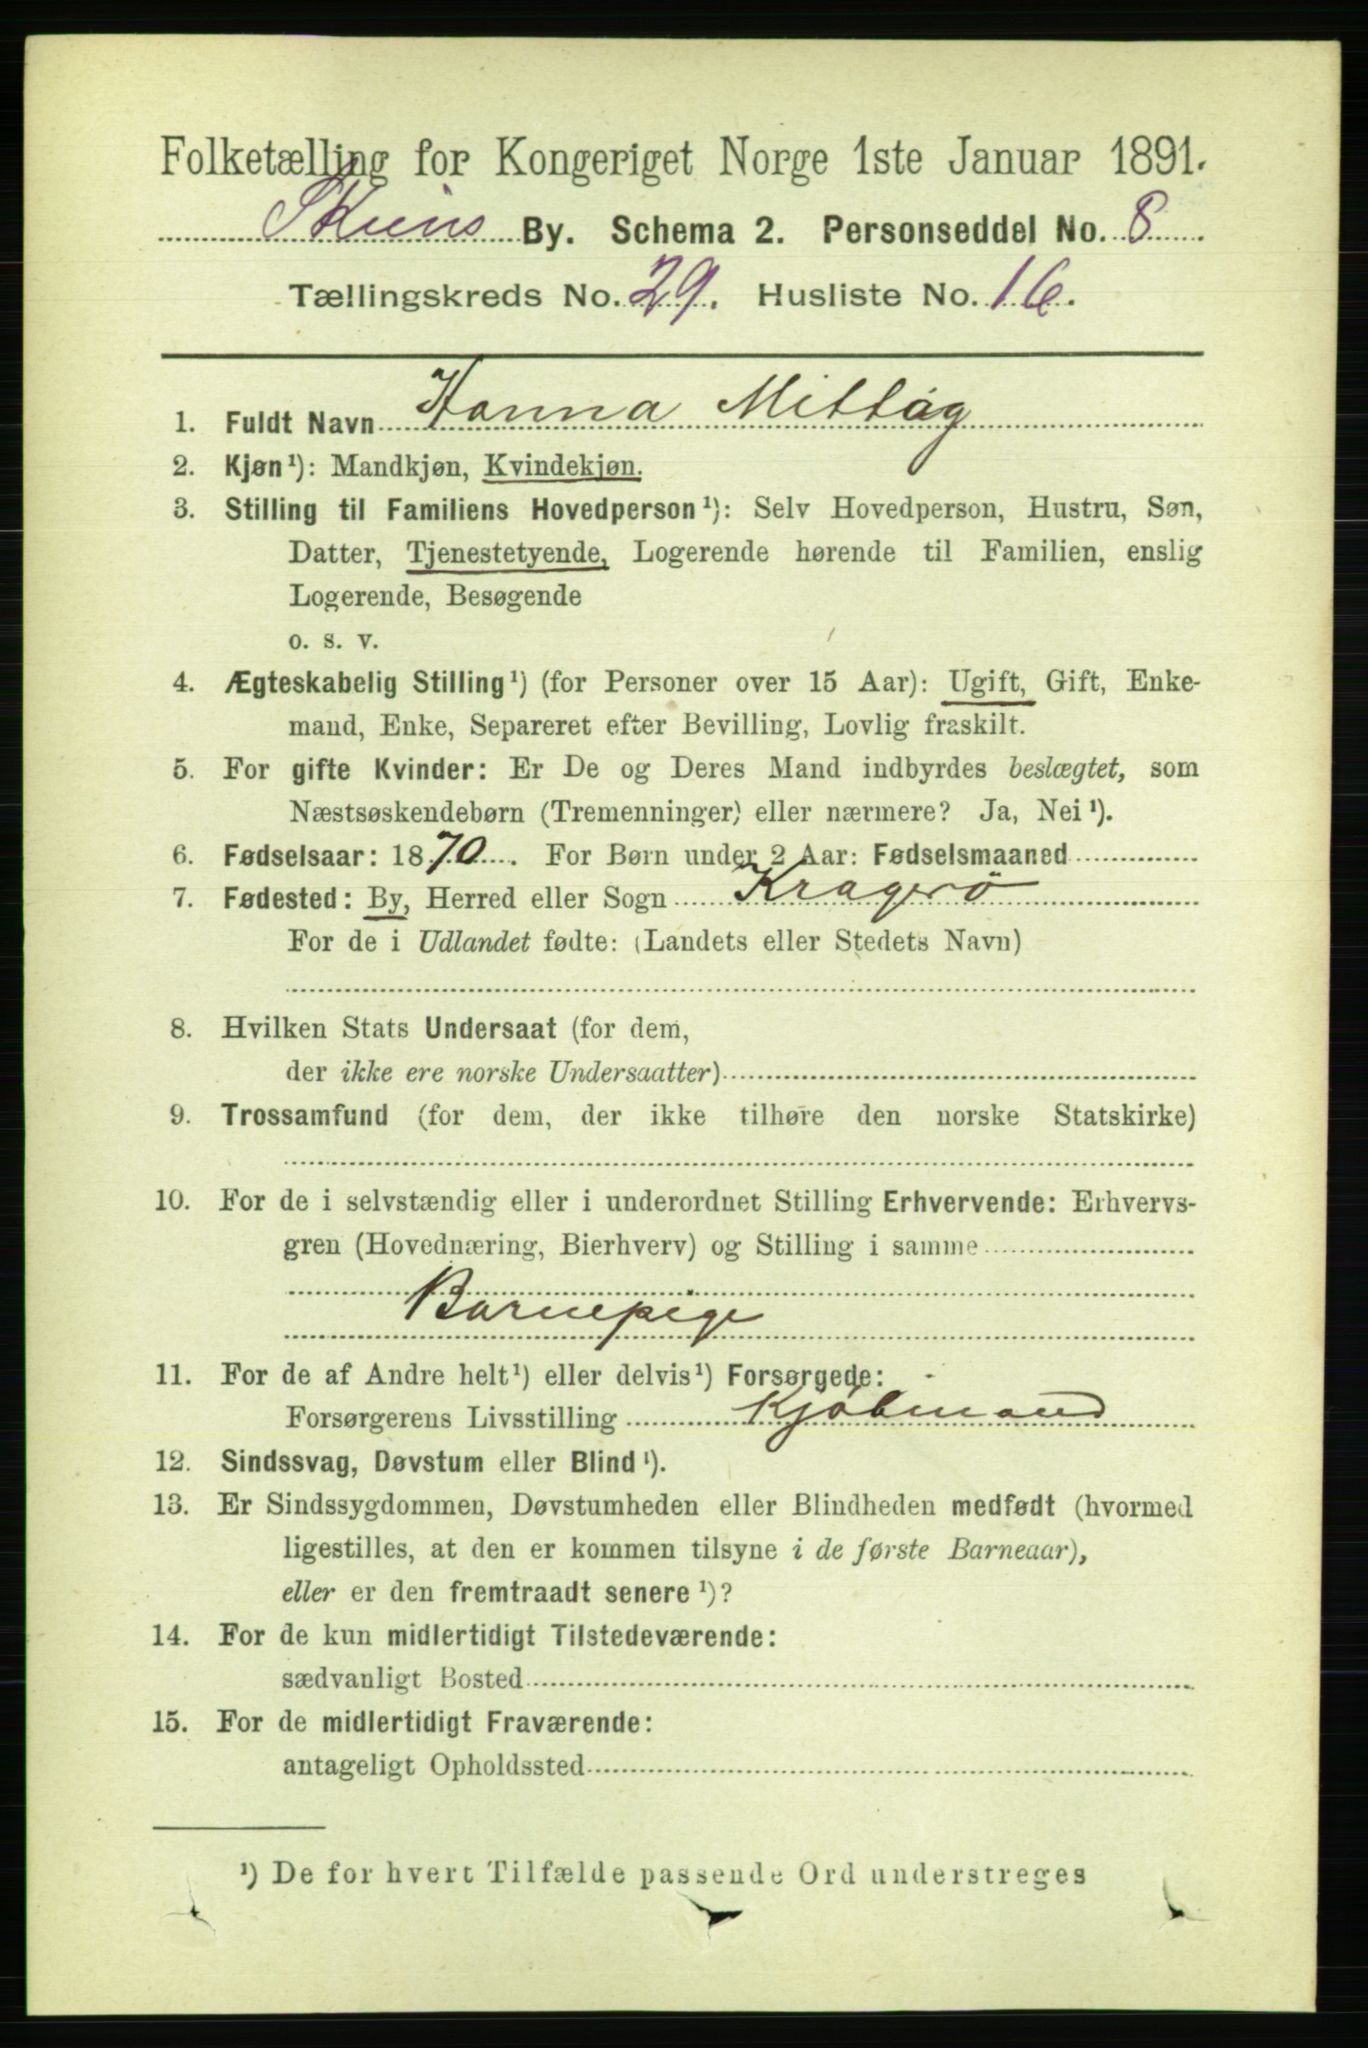 Folketælling for Kongeriget Norge 1ste Januar 1891.
Skiens By. Schema 2. Personseddel No. 8
Tællingskreds No. 29. Husliste No. 16.
1. Fuldt Navn Hanna Mittag
2. Kjøn¹): Mandkjøn, Kvindekjøn.
3. Stilling til Familiens Hovedperson¹): Selv Hovedperson, Hustru, Søn,
Datter, Tjenestetyende, Logerende hørende til Familien, enslig
Logerende, Besøgende
o. s. v.
4. Ægteskabelig Stilling¹) (for Personer over 15 Aar): Ugift, Gift, Enke-
mand, Enke, Separeret efter Bevilling, Lovlig fraskilt.
5. For gifte Kvinder: Er De og Deres Mand indbyrdes beslægtet, som
Næstsøskendebørn (Tremenninger) eller nærmere? Ja, Nei¹).
6. Fødselsaar: 1870. For Børn under 2 Aar: Fødselsmaaned
7. Fødested: By, Herred eller Sogn Kragerö
For de i Udlandet fødte: (Landets eller Stedets Navn)
8. Hvilken Stats Undersaat (for dem,
der ikke ere norske Undersaatter)
9. Trossamfund (for dem, der ikke tilhøre den norske Statskirke)
10. For de i selvstændig eller i underordnet Stilling Erhvervende: Erhvervs-
gren (Hovednæring, Bierhverv) og Stilling i samme
Barnepige
11. For de af Andre helt¹) eller delvis¹) Forsørgede:
Forsørgerens Livsstilling Kjöbmand
12. Sindssvag, Døvstum eller Blind¹).
13. Er Sindssygdommen, Døvstumheden eller Blindheden medfødt (hvormed
ligestilles, at den er kommen tilsyne i de første Barneaar),
eller er den fremtraadt senere¹)?
14. For de kun midlertidigt Tilstedeværende:
sædvanligt Bosted
15. For de midlertidigt Fraværende:
antageligt Opholdssted
¹) De for hvert Tilfælde passende Ord understreges